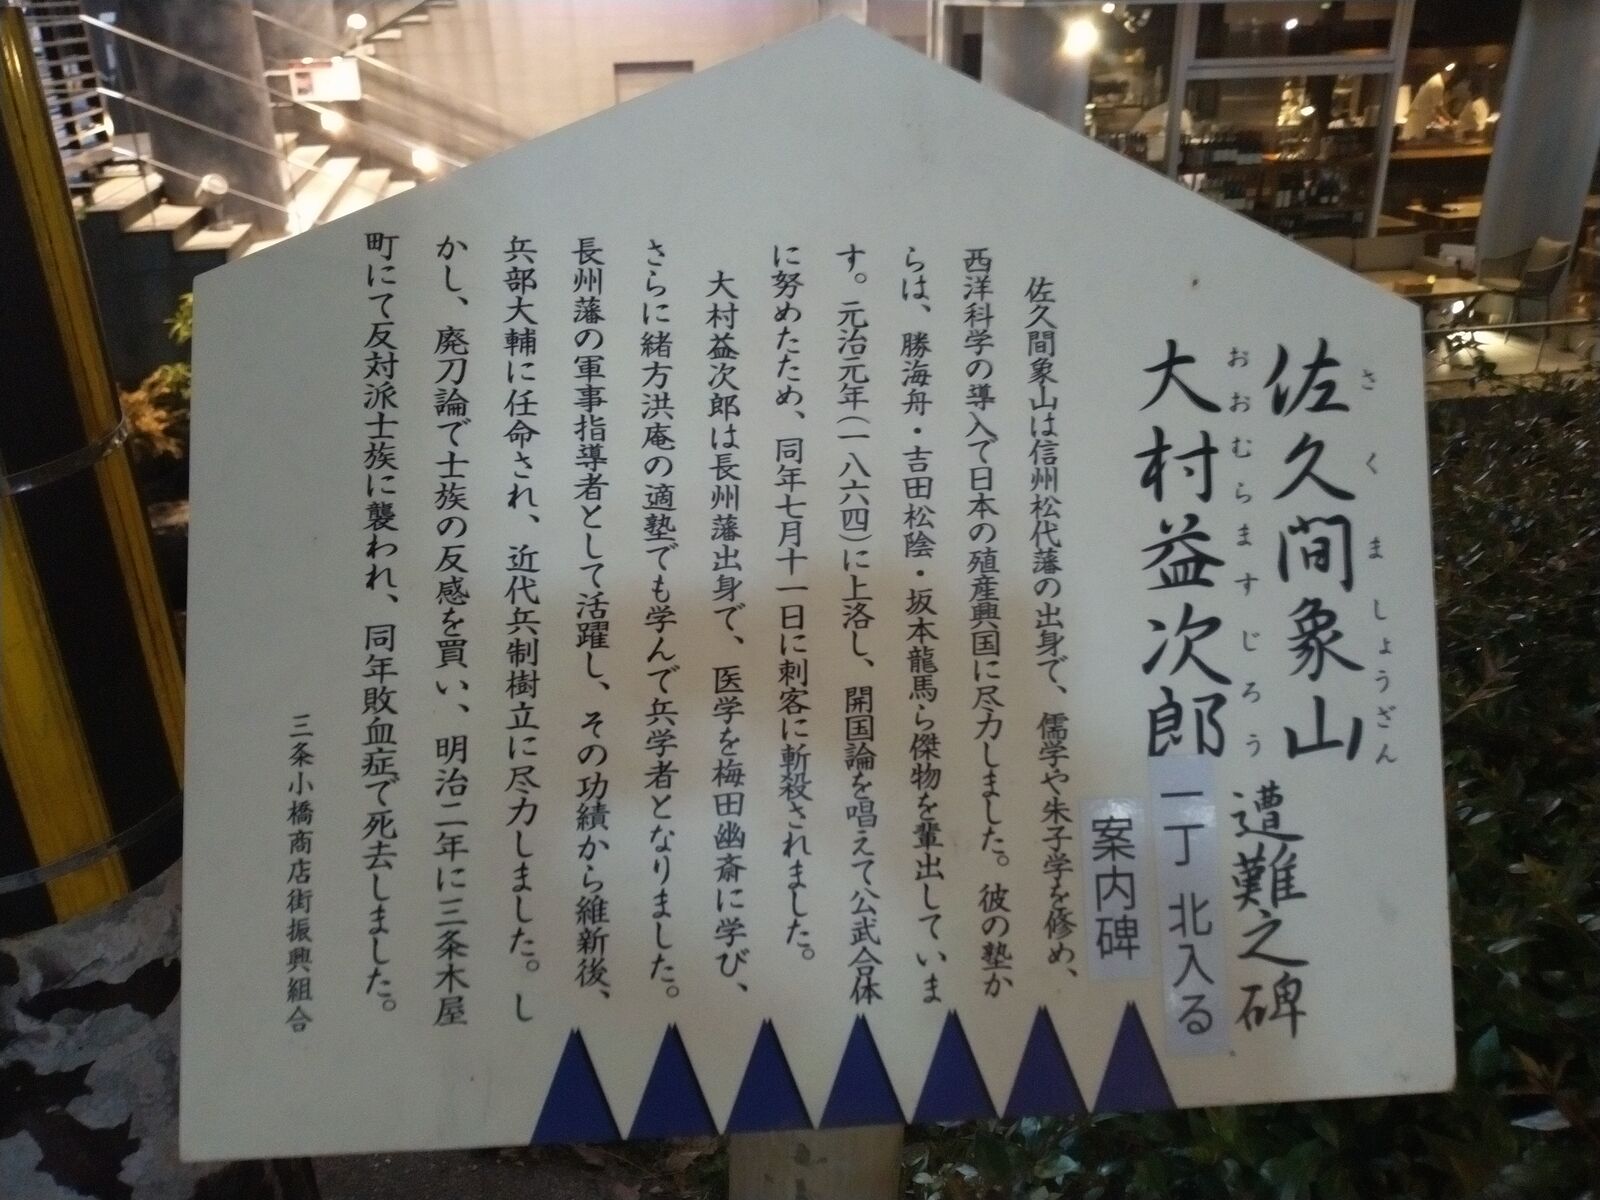 佐久間象山
さくましょうざん
大村益次郎
おおむらますじろう
遭難之碑
一丁 北入る
案内碑
佐久間象山は信州松代藩の出身で、儒学や朱子学を修め、
西洋科学の導入で日本の殖産興国に尽力しました。彼の塾か
らは、勝海舟・吉田松陰・坂本龍馬ら傑物を輩出していま
す。元治元年(一八六四)に上洛し、開国論を唱えて公武合体
に努めたため、同年七月十一日に刺客に斬殺されました。
大村益次郎は長州藩出身で、医学を梅田幽斎に学び、
さらに緒方洪庵の適塾でも学んで兵学者となりました。
長州藩の軍事指導者として活躍し、その功績から維新後、
兵部大輔に任命され、近代兵制樹立に尽力しました。し
かし、廃刀論で士族の反感を買い、明治二年に三条木屋
町にて反対派士族に襲われ、同年敗血症で死去しました。
三条小橋商店街振興組合